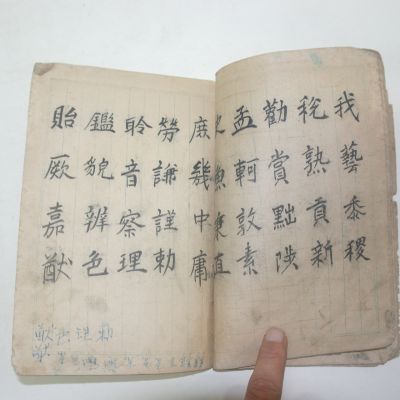 我藝黍稷
稅熟貢新
勸賞黜陟
孟軻敦素
史魚秉直
庶幾中庸
勞謙謹勅
聆音察理
鑑貌辨色
貽厥嘉猷